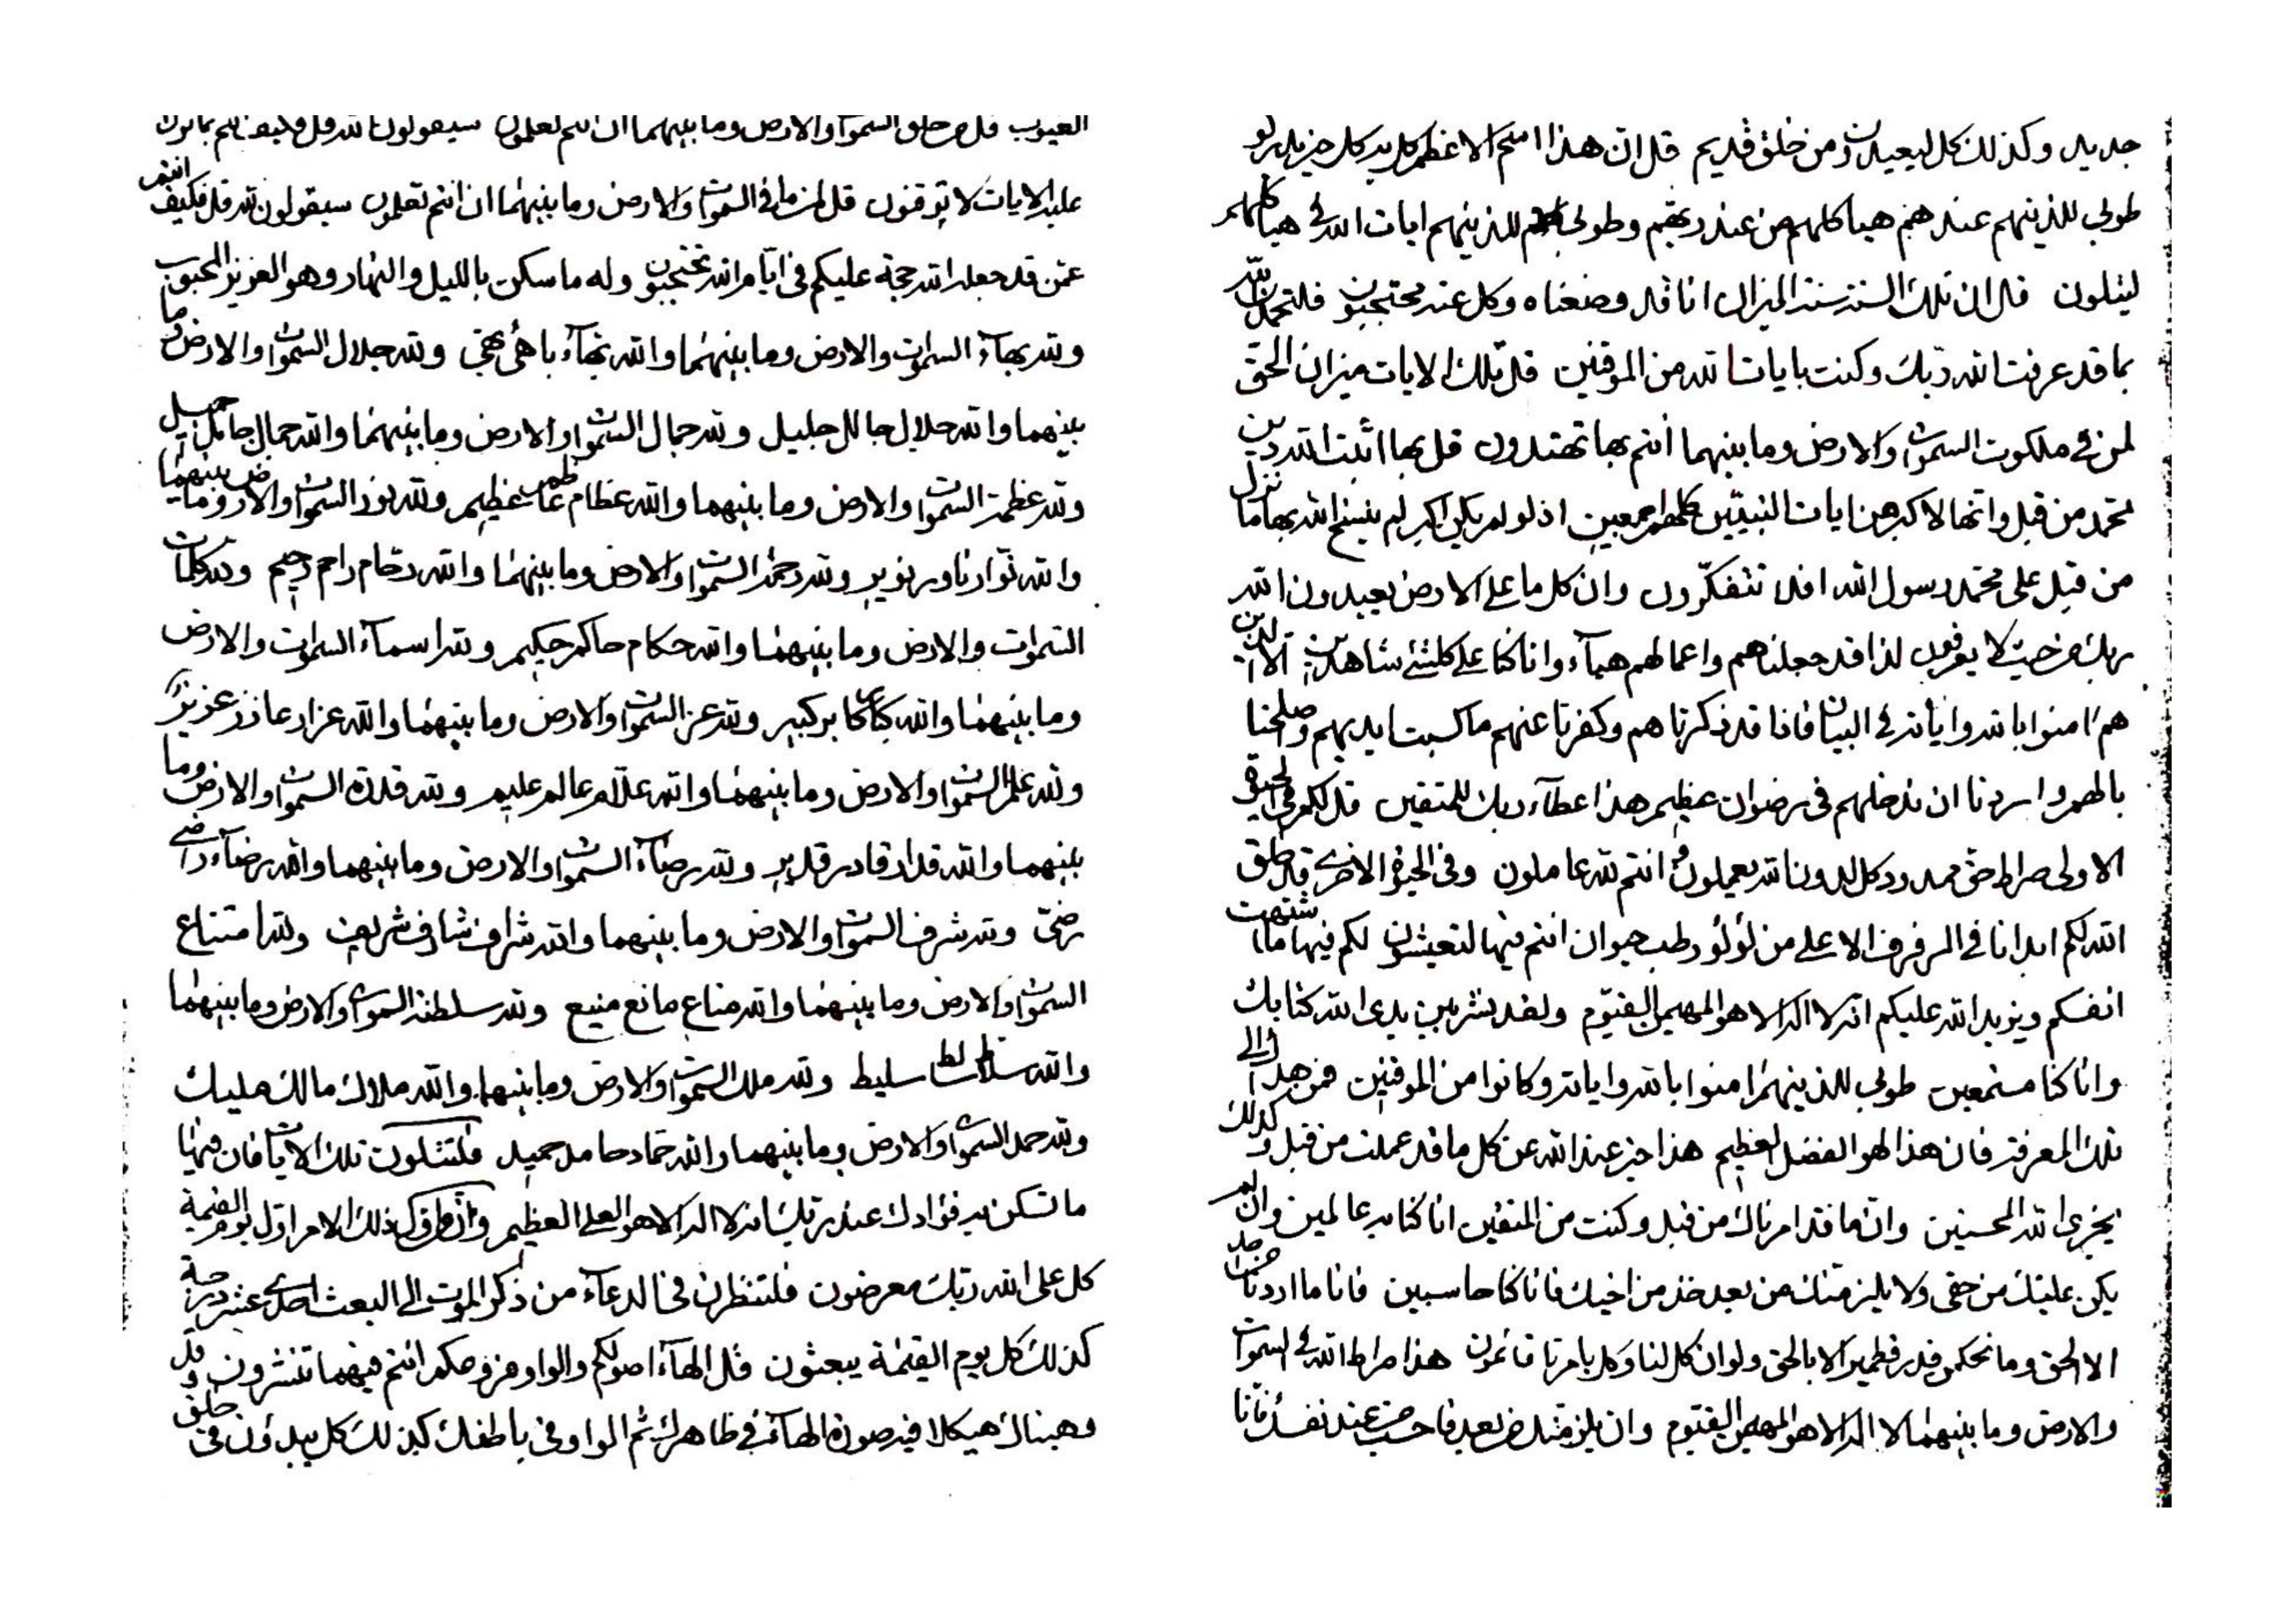 العيوب قل من خلق السموات والارض وما بينهما ان انتم تعلمون سيقولون لله قل فكيف انتم
عليه الايات لا توقنون قل لمن ما في السموات والارض وما بينهما ان انتم تعلمون سيقولون لله قل فكيف انتم
عمن قد جعله الله حجة عليكم في ايام الله تحتجبون وله ما سكن بالليل والنهار وهو العزيز المحبوب
ولله بهاء السموات والارض وما بينهما والله بهاء باهئ بهي ولله جلال السموات والارض وما
بينهما والله جلال جالل جليل ولله جمال السموات والارض وما بينهما والله جمال جامل جميل
ولله عظمة السموات والارض وما بينهما والله عظام عاظم عظيم ولله نور السموات والارض وما بينهما
والله نوار ناور نوير ولله رحمة السموات والارض وما بينهما والله رحام راحم رحيم ولله كلمات
السموات والارض وما بينهما والله حكام حاكم حكيم ولله اسماء السموات والارض
وما بينهما والله كبار كابر كبير ولله عز السموات والارض وما بينهما والله عزاز عازز عزيز
ولله علم السموات والارض وما بينهما والله علام عالم عليم ولله قدرة السموات والارض وما
بينهما والله قدار قادر قدير ولله رضاء السموات والارض وما بينهما والله رضاء راضي
رضي ولله شرف السموات والارض وما بينهما والله شراف شارف شريف ولله امتناع
السموات والارض وما بينهما والله مناع مانع منيع ولله سلطنة السموات والارض وما بينهما
والله سلاط سالط سليط ولله ملك السموات والارض وما بينهما والله ملاك مالك مليك
ولله حمد السموات والارض وما بينهما والله حماد حامد حميد فلتتلون تلك الايات فان فيها
ما تسكن به فؤادك عند ربك انه لا اله الا هو العلي العظيم كذلك الامر اول يوم القيمة
كل على الله ربك معرضون فلتنظرن في الدعاء من ذكر الموت الى البعث احدى عشر درجة
كذلك كل يوم القيمة يبعثون قل الهاء اصولكم والواو فروعكم انتم فيهما تنشرون وقد
وهبناك هيكلا فيه صورة الهاء في ظاهرك ثم الواو في باطنك كذلك كل يبدؤن في خلق
جديد وكذلك كل ليعيدن من خلق قديم قل ان هذا اسم الاعظم كل به كل خير يدركو
طوبى للذينهم عندهم هياكلهم من عند ربهم وطوبى للذينهم ايات الله في هياكلهم
ليتلون قل ان تلك السنة سنة الميزان انا قد وضعناه وكل عنه محتجبون فلتحمدن الله
بما قد عرفت الله ربك وكنت بايات الله من الموقنين قل تلك الايات ميزان الحق
لمن في ملكوت السموات والارض وما بينهما انتم بها تهتدون قل بها اثبت الله دين
محمد من قبل وانها لاكبر من ايات النبيين كلهم اجمعين اذ لو لم يكن اكبر لم ينسخ الله بها ما نزل
من قبل على محمد رسول الله افلا تتفكرون وان كل ما على الارض يعبدون الله
ربك من حيث لا يعرفون لذا قد جعلناهم واعمالهم هباء وانا كنا على كلشئ شاهدين الا الذين
هم امنوا بالله واياته في البيان فانا قد ذكرناهم وكفرنا عنهم ما كسبت ايديهم وصلحنا
بالهم واردنا ان ندخلهم في رضوان عظيم هذا عطاء ربك للمتقين قل لكم في الحيوة
الاولى صراط حق ممدود كل لدون الله يعملون وانتم لله عاملون وفي الحيوة الاخرى قد خلق
الله لكم ابدانا في الرفرف الاعلى من لؤلؤ رطب حيوان انتم فيها لتعيشون لكم فيها ما اشتهت
انفسكم ويزيد الله عليكم انه لا اله الا هو المهيمن القيوم ولقد نشر بين يدي الله كتابك
وانا كنا مستمعين طوبى للذينهم امنوا بالله واياته وكانوا من الموقنين فمن هدى الى
تلك المعرفة فان هذا لهو الفضل العظيم هذا خير عند الله عن كل ما قد عملت من قبل وكذلك
يجزى الله المحسنين وان ما قد امرناك من قبل وكنت من المتقين انا كنا به عالمين وان لم
يكن عليك من حقي ولا يلزمنك من بعد خذ من اخيك فانا كنا حاسبين فانا ما اردنا من احد
الا الحق وما نحكم قدر قطمير الا بالحق ولو ان كل لنا وكل بامرنا قائمون هذا صراط الله في السموات
والارض وما بينهما لا اله الا هو المهيمن القيوم وان يلزمنك من بعد فاحسب عند نفسك فانا